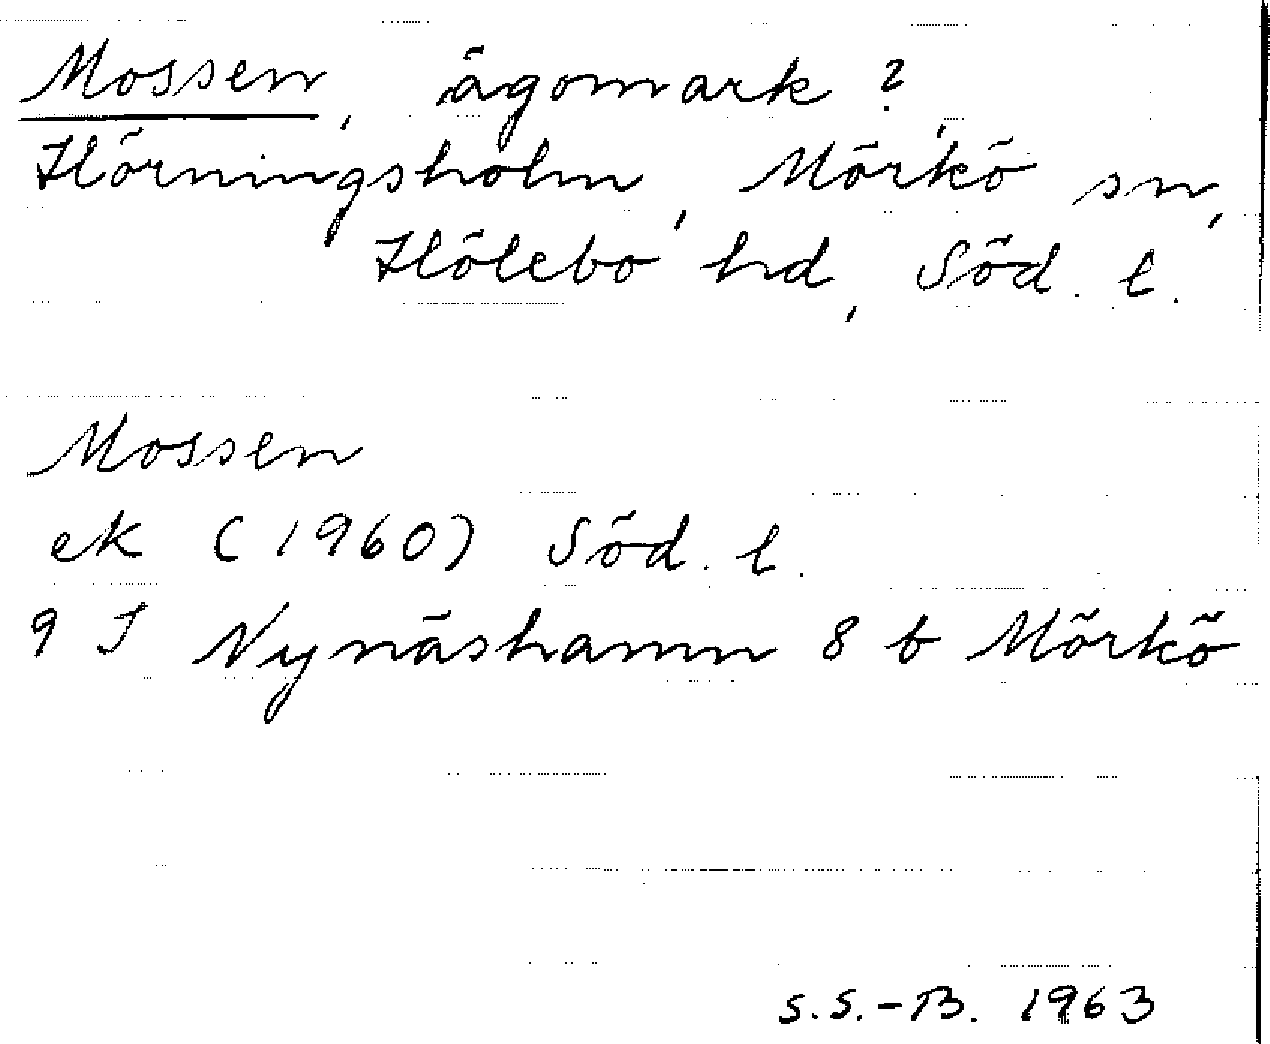 Mossen, ägomark?
Hörningsholm, Mörkö sn,
Hölebo hd, Söd. l.
Mossen
ek (1960) Söd. l.
9 I Nynäshamn 8 b Mörkö
S.S.-B. 1963